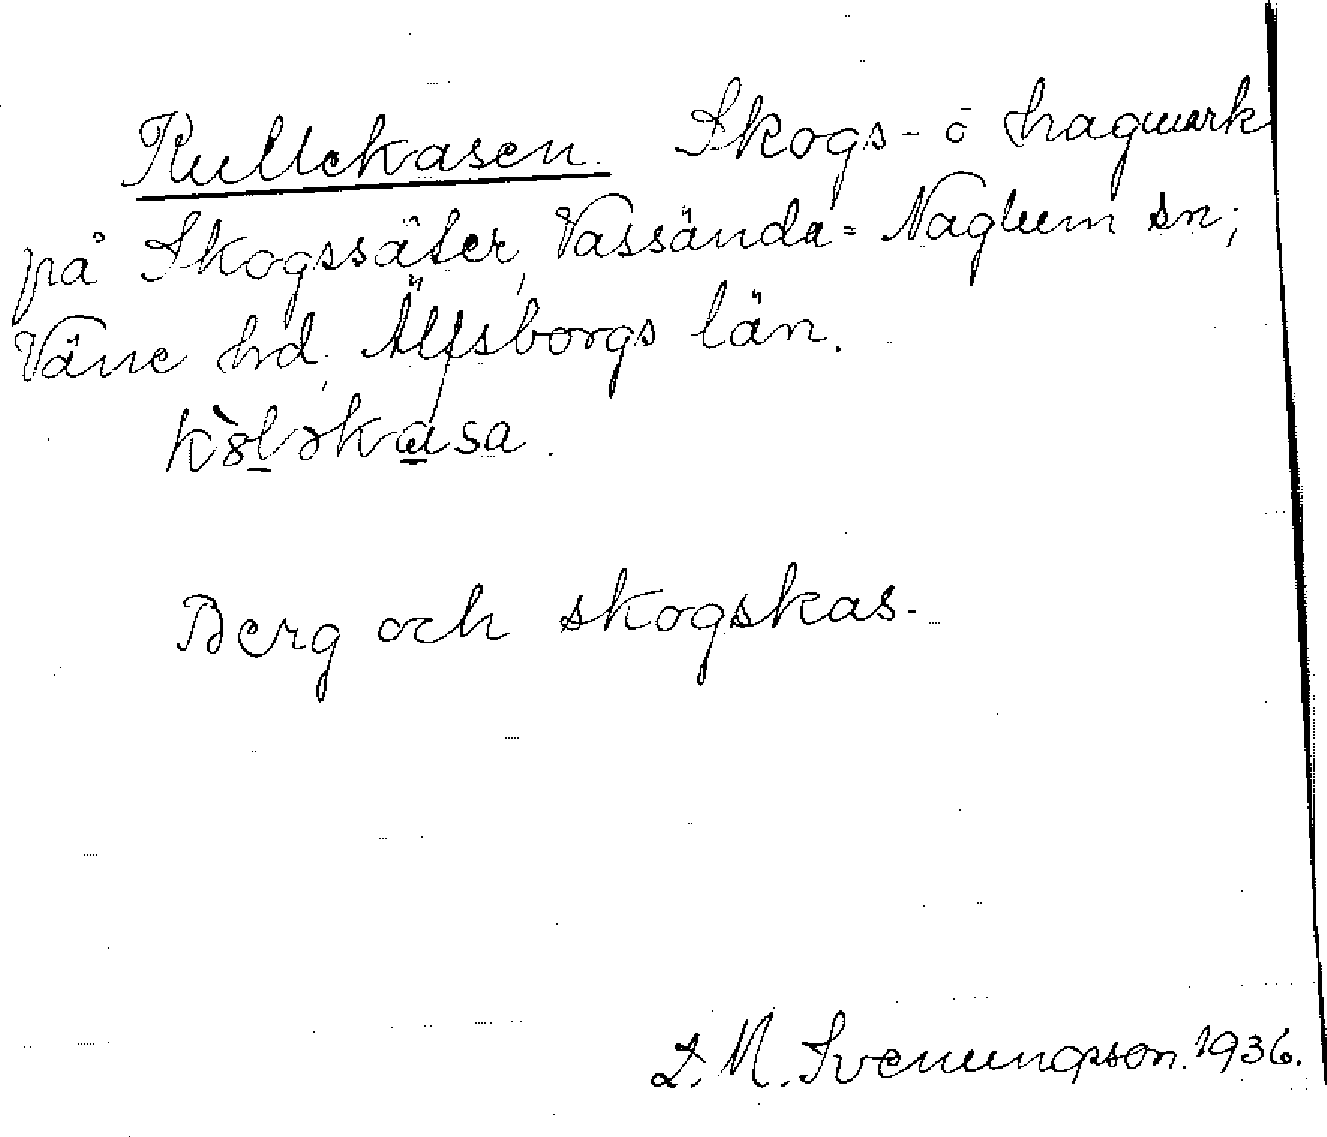 Kullekasen. Skogs- o hagmark
på Skogssäter, Vassända-Naglum sn;
Väne hd, Älfsborgs län.
Berg och skogskas.
L. M. Svenungsson. 1936.